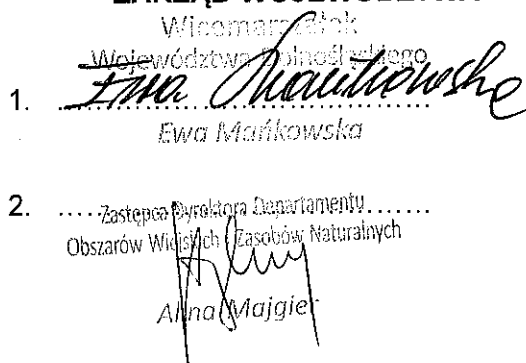 ZARZĄD WOJEWÓDZTWA
Wicemarszałek
Województwa Dolnośląskiego
1. Ewa Mańkowska
Ewa Mańkowska
2. Zastępca Dyrektora Departamentu
Obszarów Wiejskich i Zasobów Naturalnych
Alina Majgier